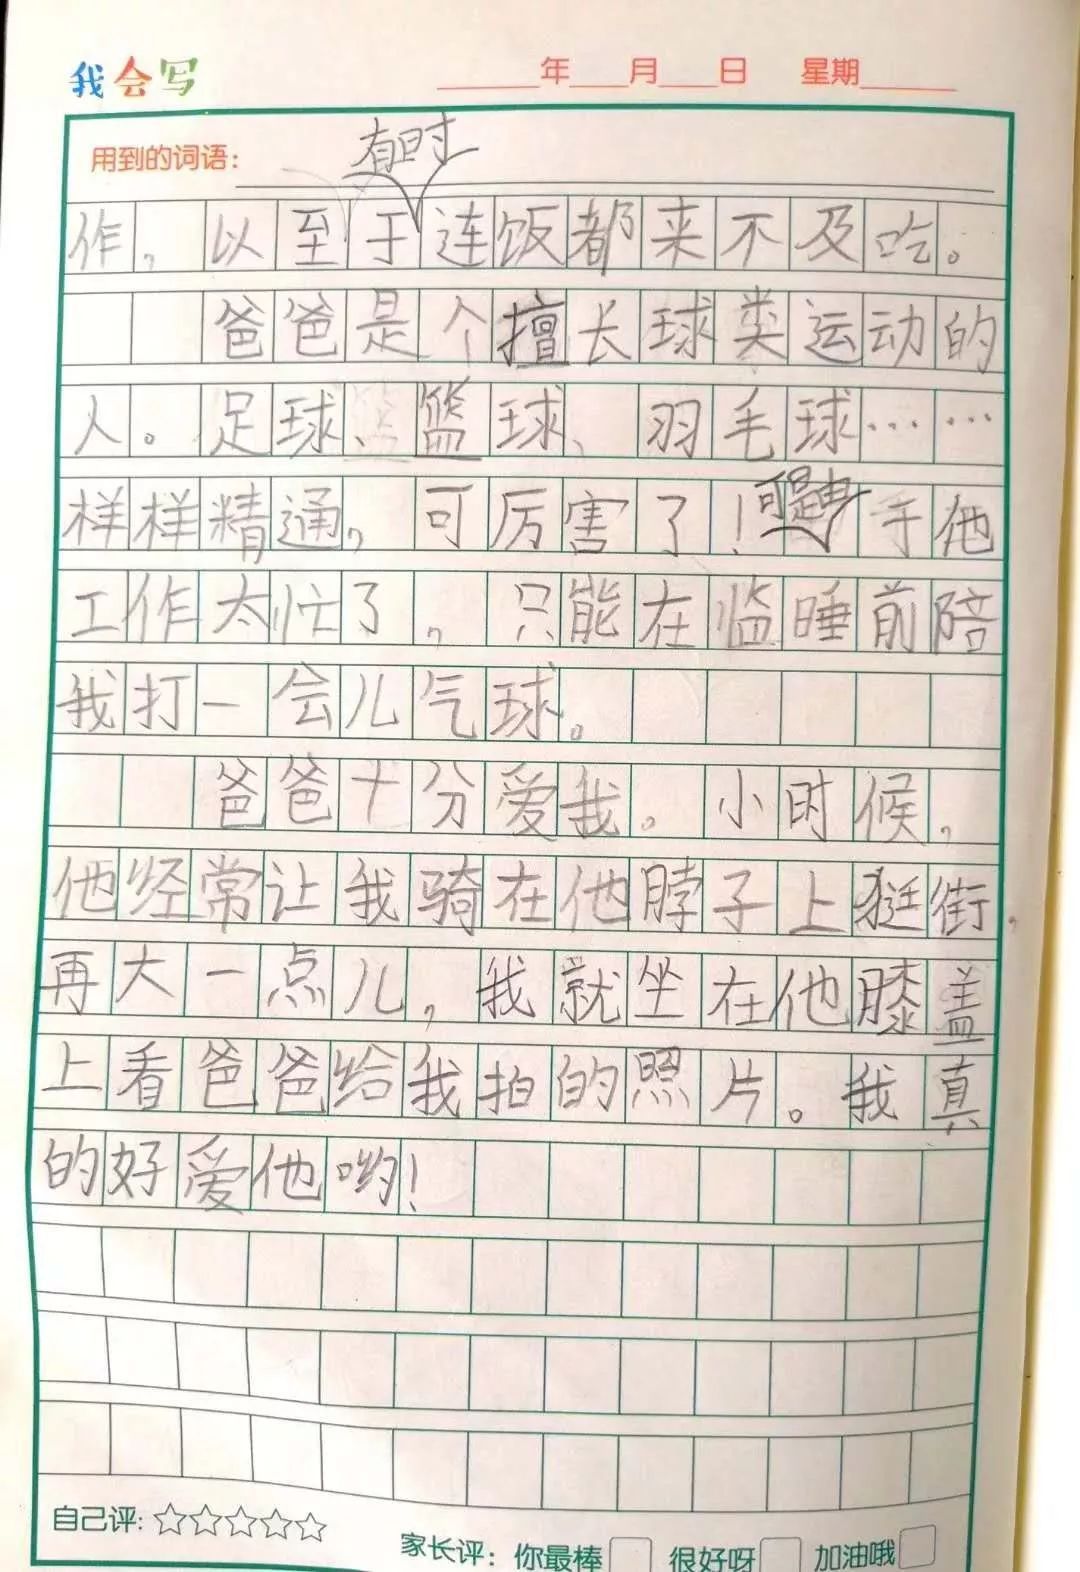 我会写
年 月 日 星期
用到的词语:
有时
作,以至于连饭都来不及吃。
爸爸是个擅长球类运动的
人。足球、篮球、羽毛球……
样样精通,可厉害了!可是由于他
工作太忙了,只能在临睡前陪
我打一会儿气球。
爸爸十分爱我。小时候,
他经常让我骑在他脖子上挺街,
再大一点儿,我就坐在他膝盖
上看爸爸给我拍的照片。我真
的好爱他哟!
自己评:☆☆☆☆☆
家长评:你最棒□ 很好呀□ 加油哦□